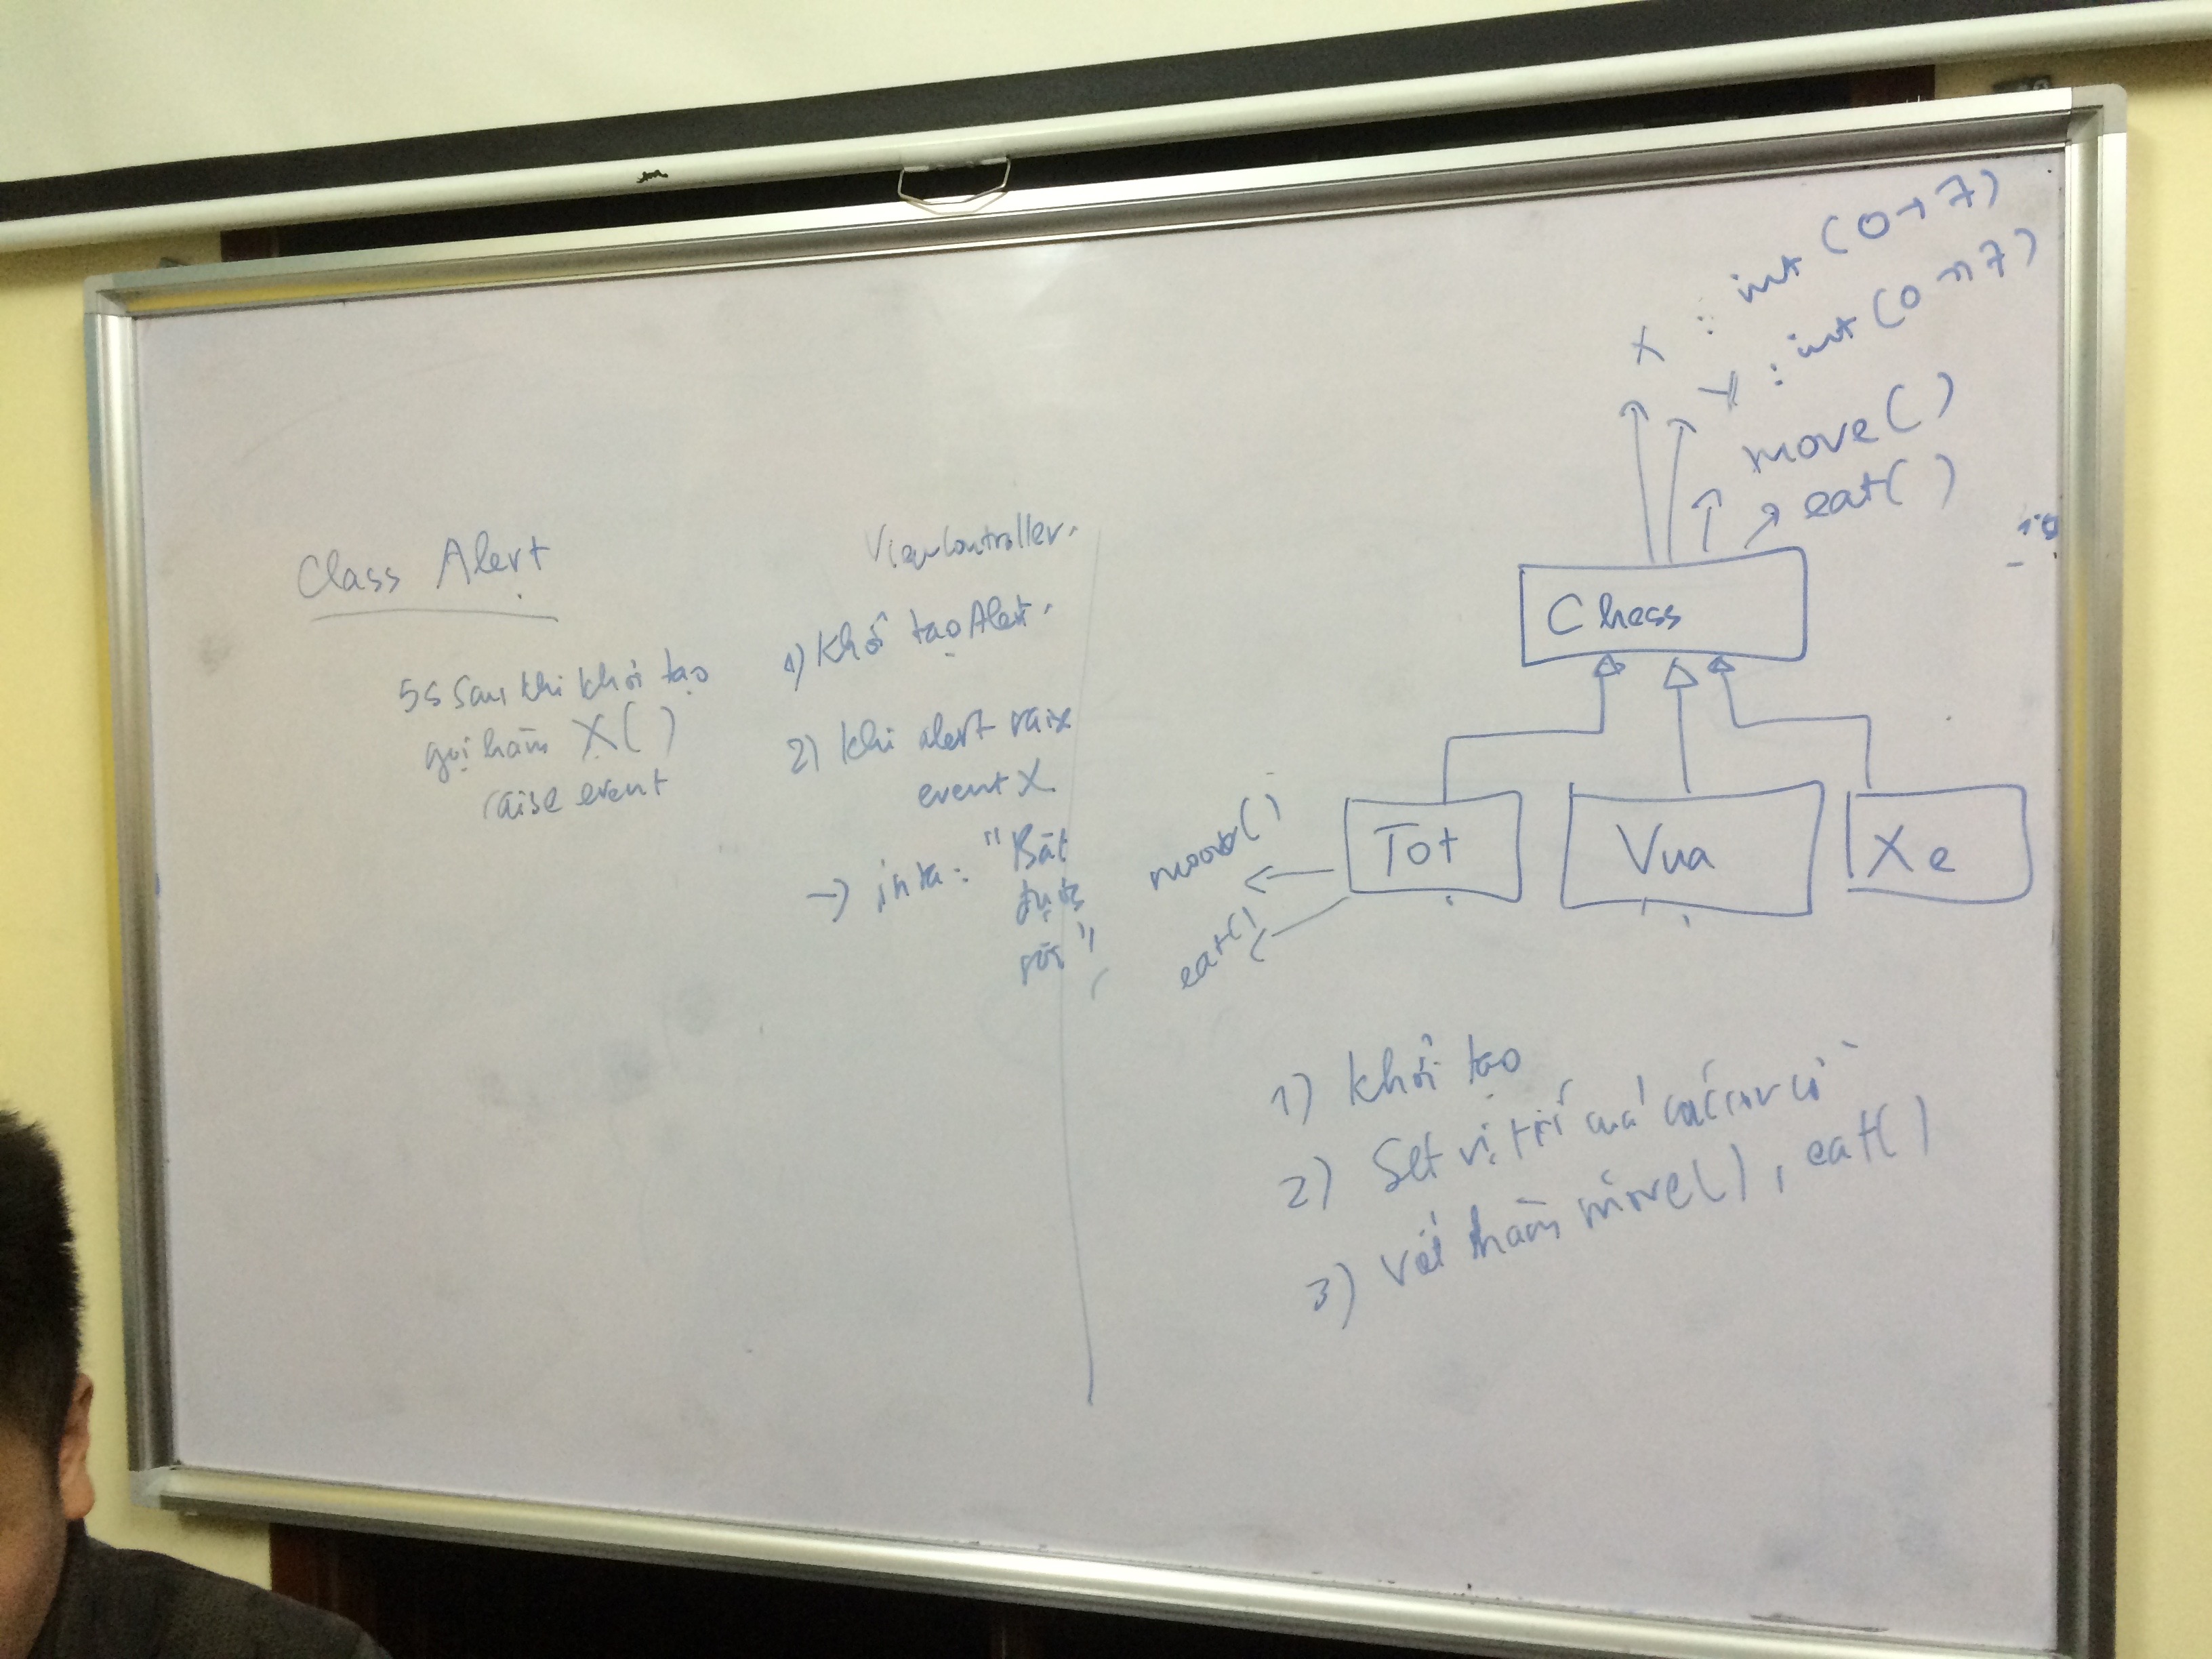 Class Alert
5s sau khi khởi tạo
gọi hàm X()
raise event
ViewController.
1) Khởi tạo Alert.
2) Khi alert raise
event X
→ in ra: "Bắt
được
rồi"
X : int (0→7)
Y : int (0→7)
move()
eat()
Chess
Tot
Vua
Xe
move()
eat()
1) Khởi tạo
2) Set vị trí của các con cờ
3) Viết hàm move(), eat()